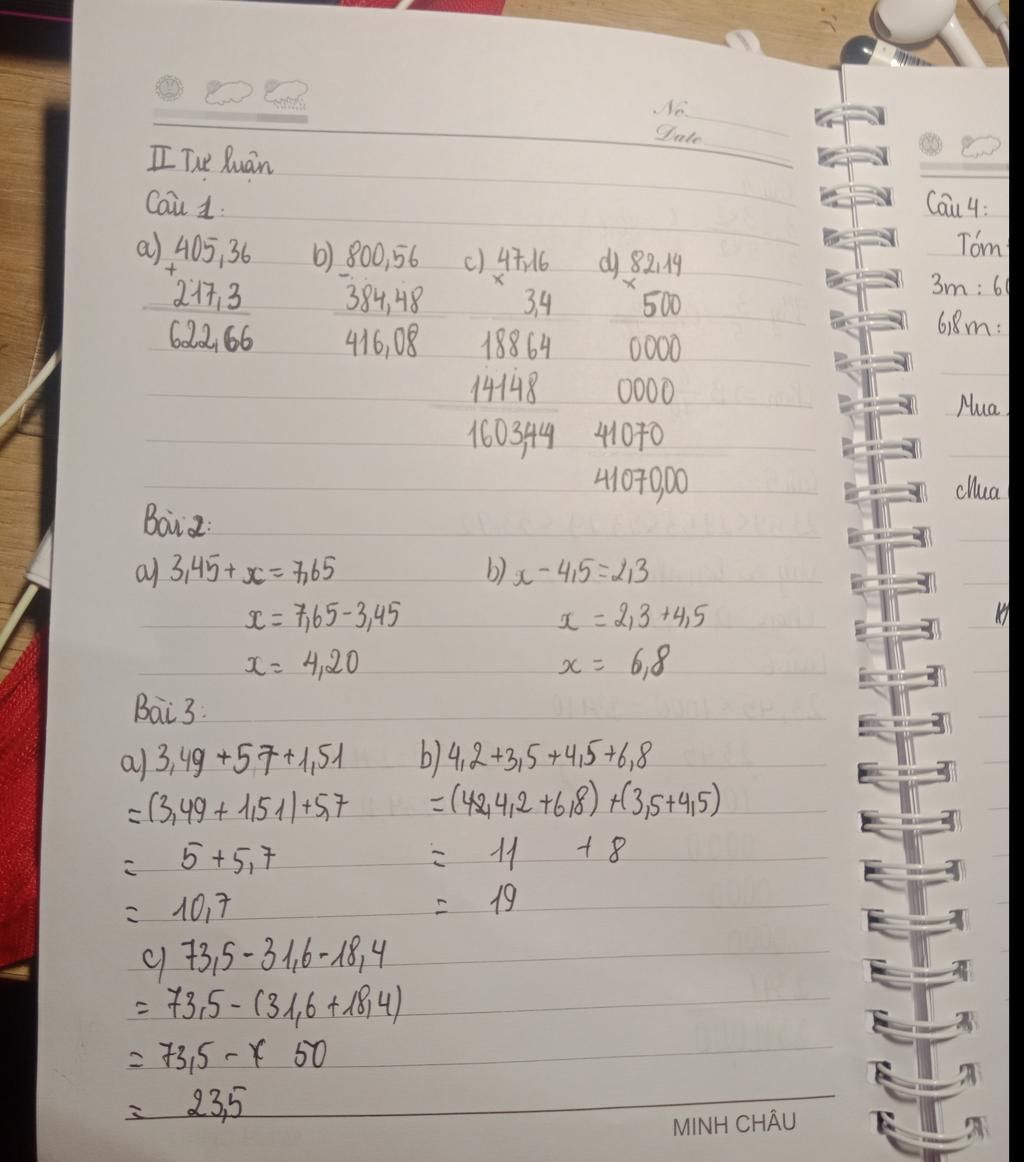 No.
Date
II Tự luận
Câu 1:
a) 405,36 b) 800,56 c) 47,16 d) 82,14
+ - × ×
217,3 384,48 3,4 500
622,66 416,08 18864 0000
14148 0000
1603,44 41070
41070,00
Bài 2:
a) 3,45 + x = 7,65 b) x - 4,5 = 2,3
x = 7,65 - 3,45 x = 2,3 + 4,5
x = 4,20 x = 6,8
Bài 3:
a) 3,49 + 5,7 + 1,51 b) 4,2 + 3,5 + 4,5 + 6,8
= (3,49 + 1,51) + 5,7 = (42,4,2 + 6,8) + (3,5 + 4,5)
= 5 + 5,7 = 11 + 8
= 10,7 = 19
c) 73,5 - 31,6 - 18,4
= 73,5 - (31,6 + 18,4)
= 73,5 - 50
= 23,5
MINH CHÂU
Câu 4:
Tóm
3m : 60
6,8m :
Mua
Mua